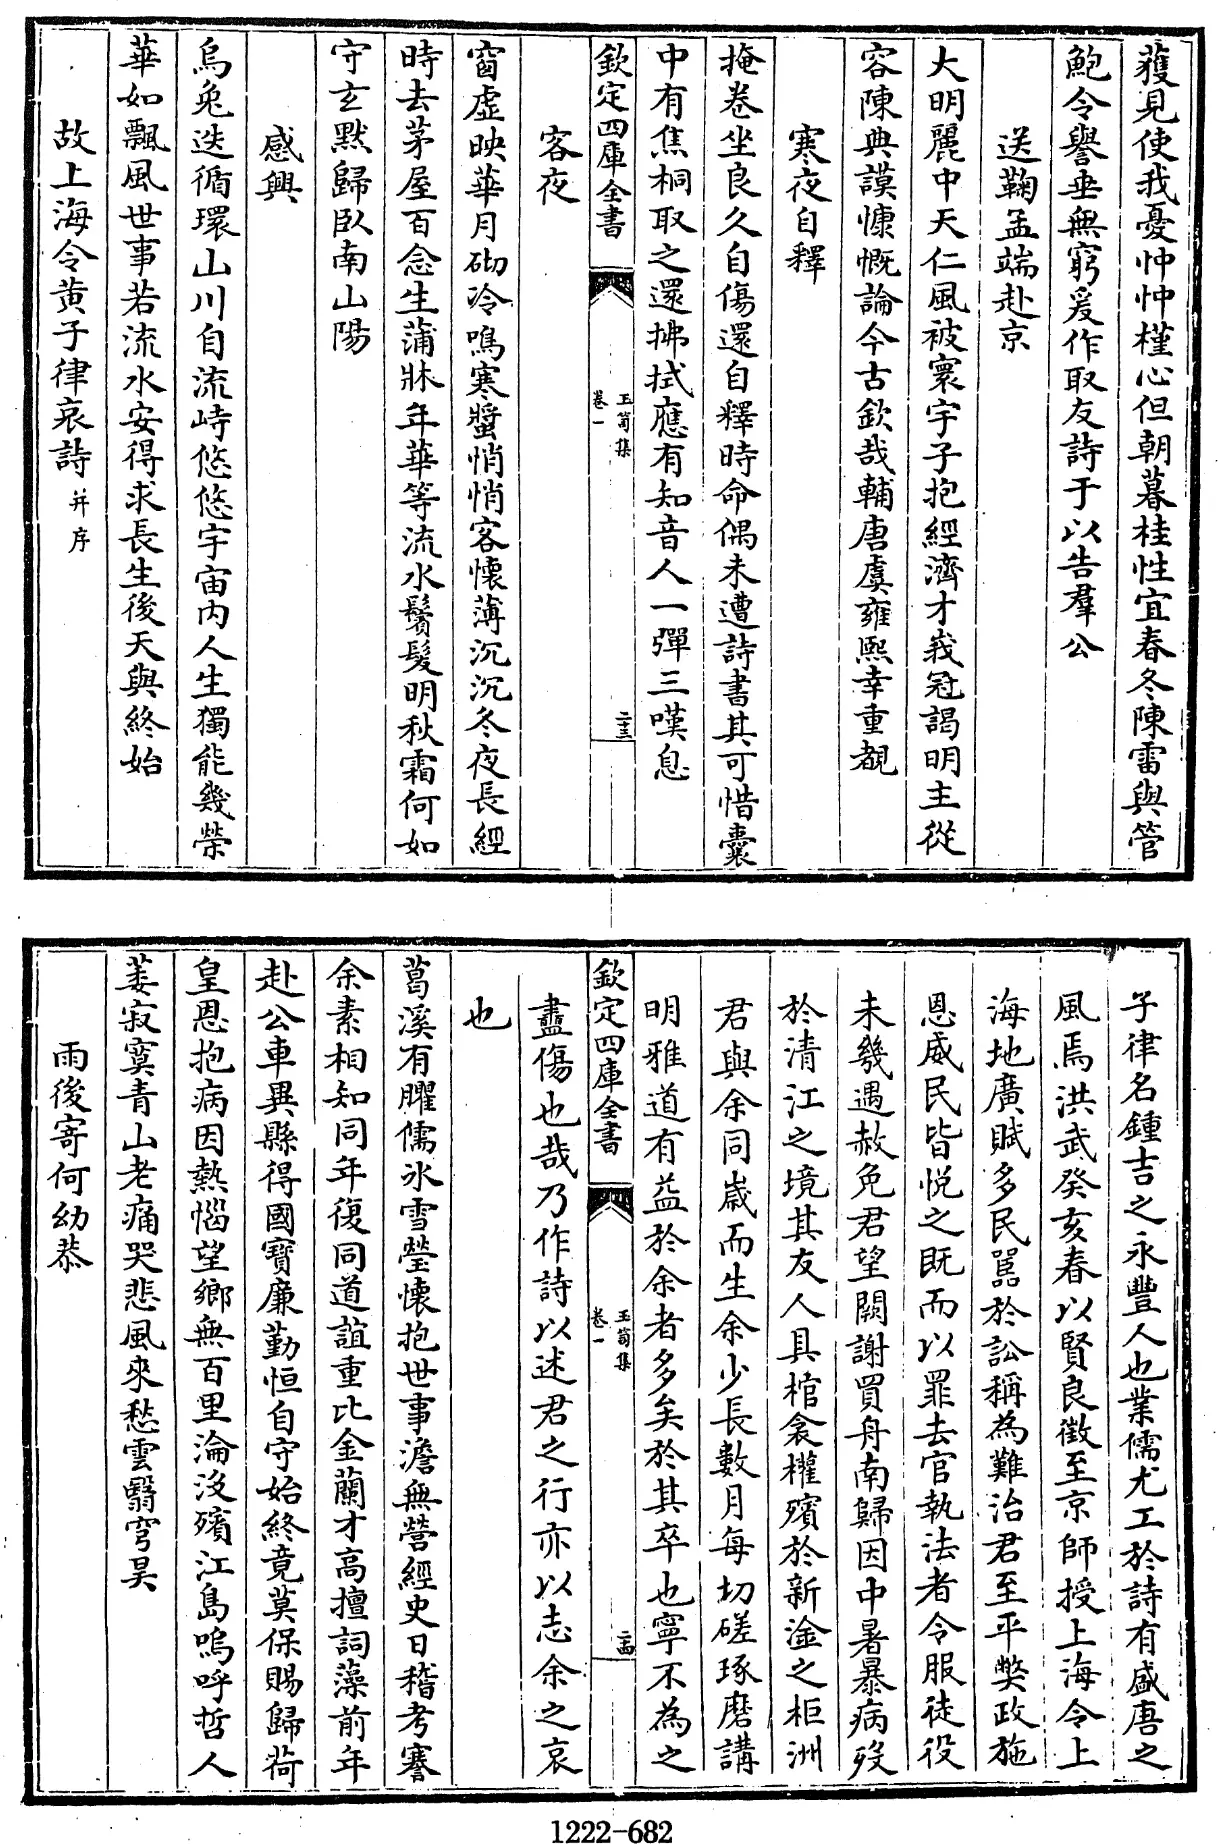 獲見使我憂忡忡槿心但朝暮桂性宜春冬陳雷與管
鮑令譽垂無窮爰作取友詩于以告羣公
送鞠孟端赴京
大明麗中天仁風被寰宇子抱經濟才峩冠謁明主從
容陳典謨慷慨論今古欽哉輔唐虞雍熙幸重覩
寒夜自釋
掩卷坐良久自傷還自釋時命偶未遭詩書其可惜囊
中有焦桐取之還拂拭應有知音人一彈三嘆息
欽定四庫全書
玉笥集
卷一
二十三
客夜
窗虛映華月砌冷鳴寒螿悄悄客懷薄沉沉冬夜長經
時去茅屋百念生蒲牀年華等流水鬢髮明秋霜何如
守玄默歸臥南山陽
感興
烏兔迭循環山川自流峙悠悠宇宙內人生獨能幾榮
華如飄風世事若流水安得求長生後天與終始
故上海令黄子律哀詩并序
子律名鍾吉之永豐人也業儒尤工於詩有盛唐之
風焉洪武癸亥春以賢良徴至京師授上海令上
海地廣賦多民嚚於訟稱為難治君至平獘政施
恩威民皆悅之既而以罪去官執法者令服徒役
未幾遇赦免君望闕謝買舟南歸因中暑暴病歿
於清江之境其友人具棺衾權殯於新淦之柜洲
君與余同歲而生余少長數月每切磋琢磨講
明雅道有益於余者多矣於其卒也寧不為之
欽定四庫全書
玉笥集
卷一
二十四
盡傷也哉乃作詩以述君之行亦以志余之哀
也
葛溪有臞儒冰雪瑩懷抱世事澹無營經史日稽考謇
余素相知同年復同道誼重比金蘭才高擅詞藻前年
赴公車異縣得國寶廉勤恒自守始終竟莫保賜歸荷
皇恩抱病因熱惱望鄉無百里淪沒殯江島嗚呼哲人
萎寂寞青山老痛哭悲風來愁雲翳穹昊
雨後寄何幼恭
1222-682